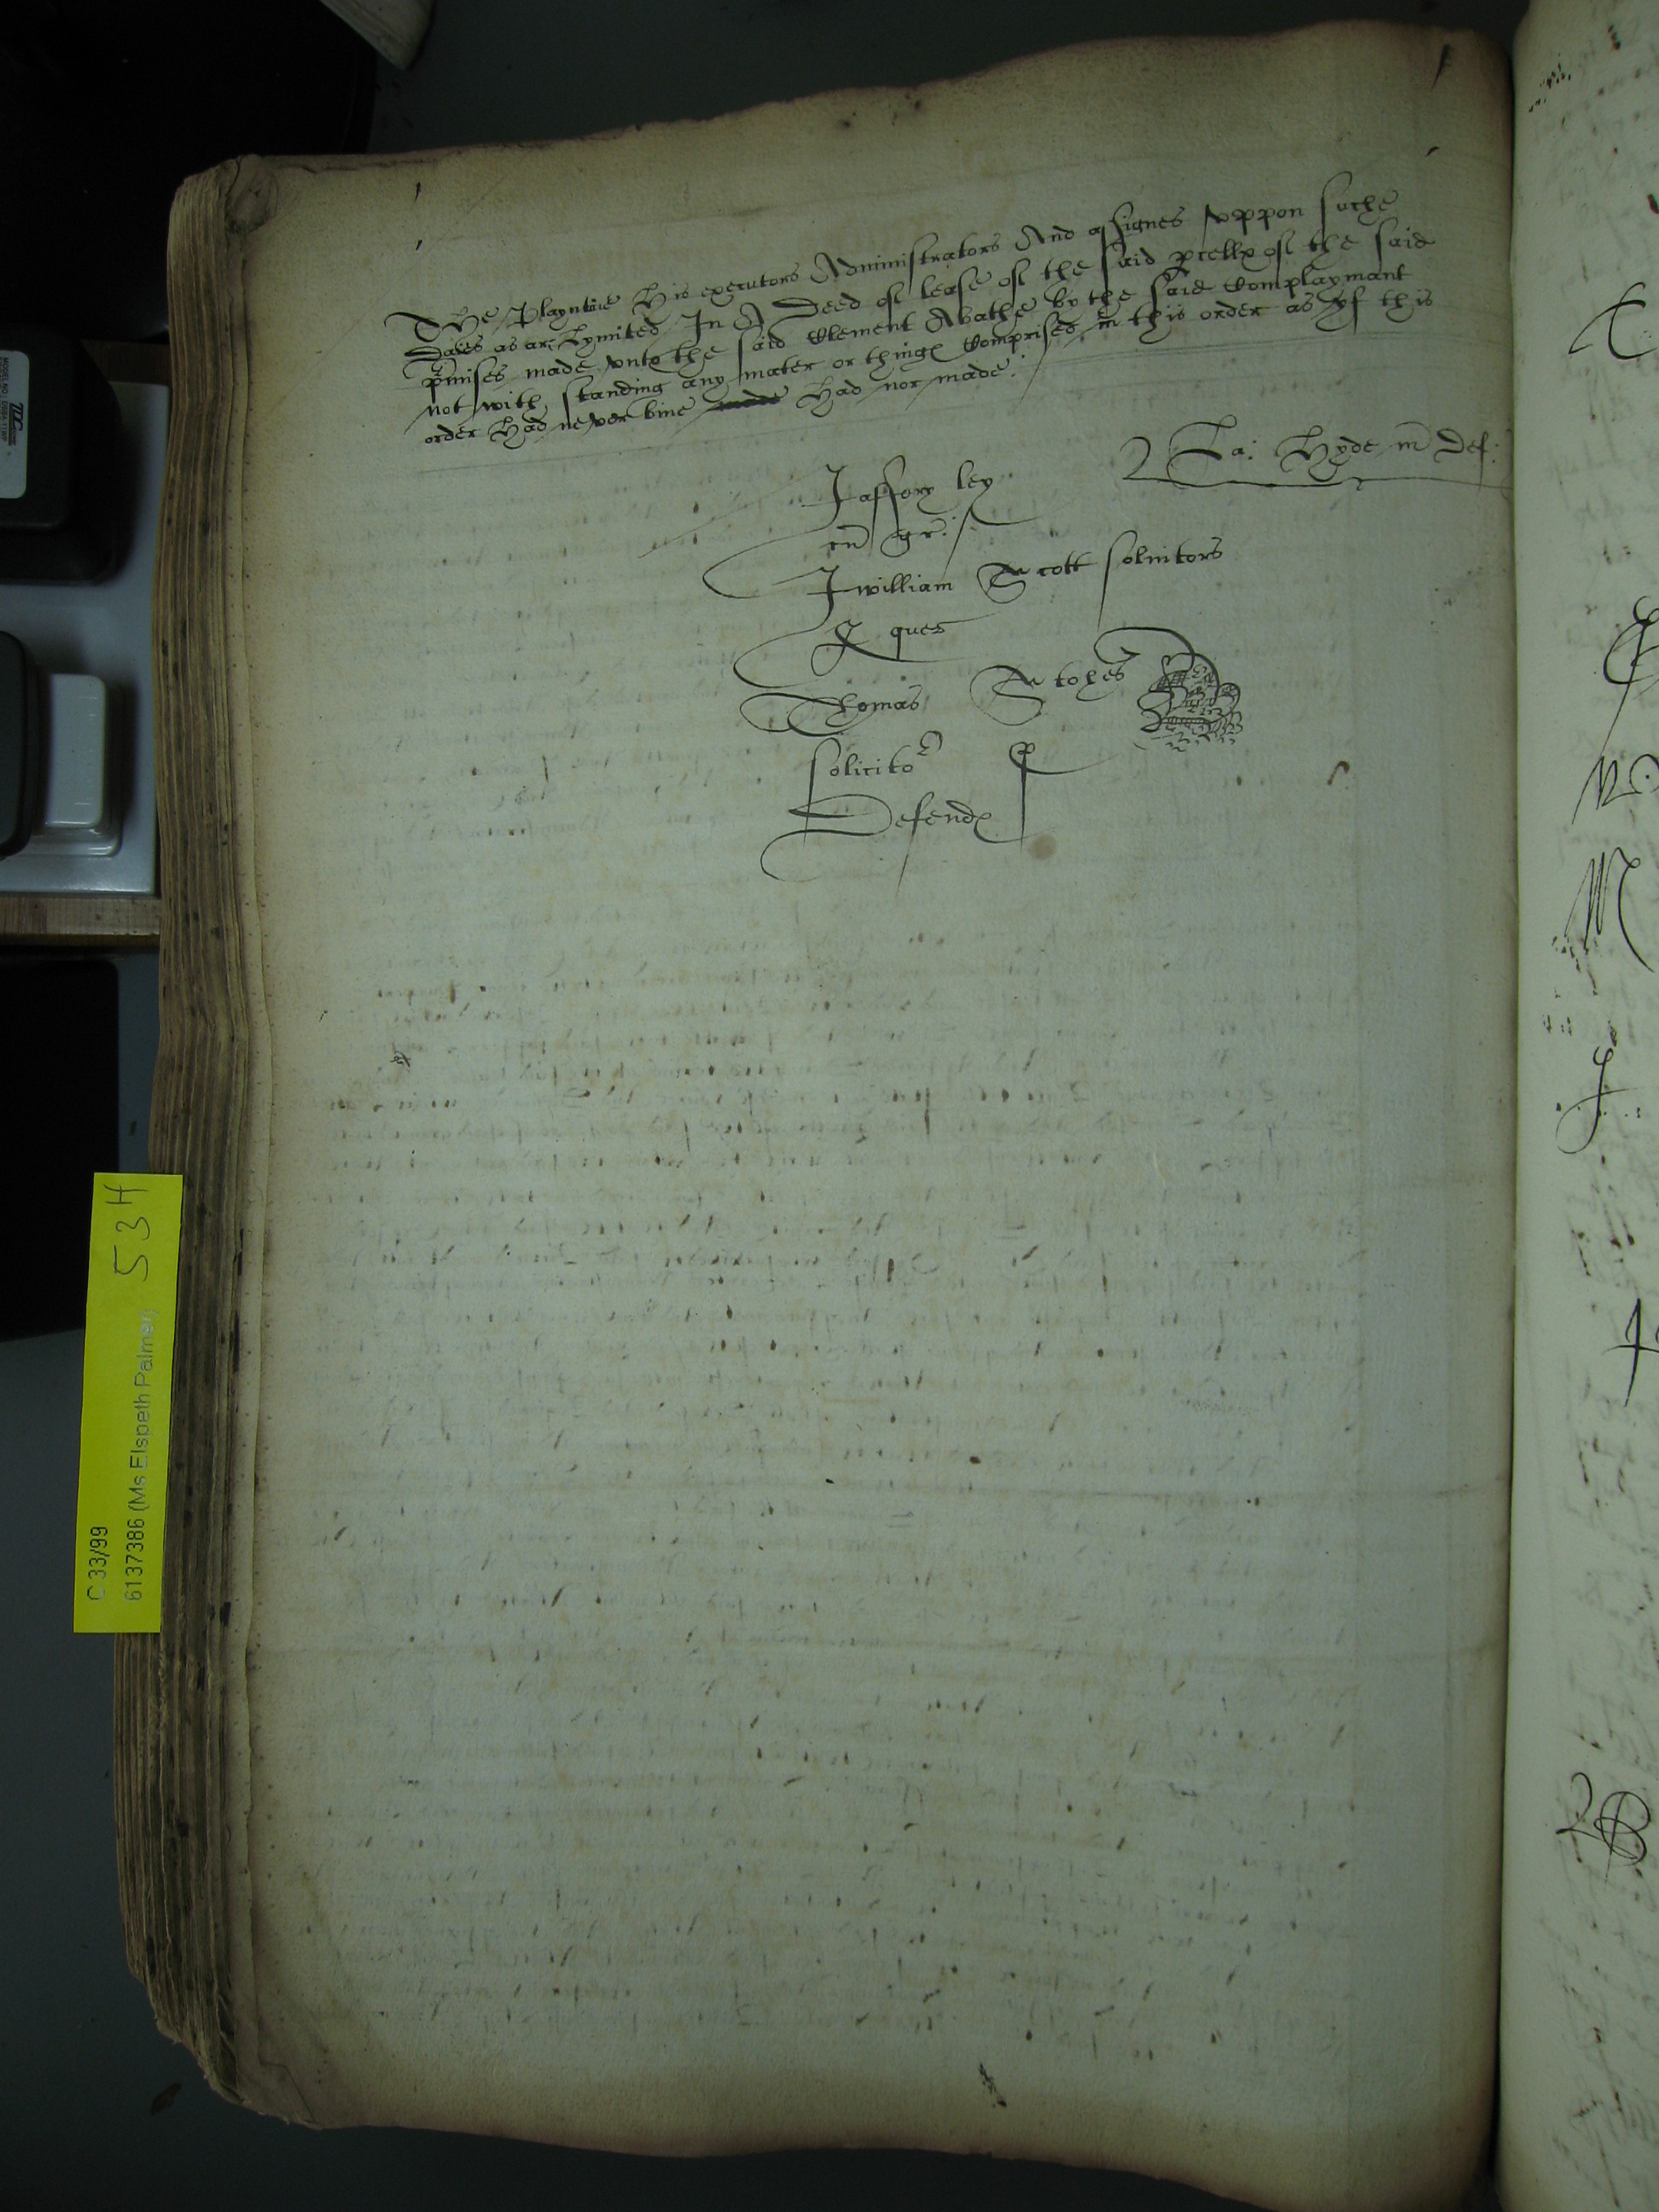 The Playntive His executors Administrators And assignes vppon suche
Daies as are Lymited In A Deed of lease of the said pcells of the said
pmises made vnto the said Clement Abathe by the said Complaymant
not with standing any mater or things Comprised in this order as yf this
order Had never bine made Had nor made:
La: Hyde in Def:
Jaffory ley
cu gr:
William Scott solnitors
ques
Thomas Stokes
solicito r p
Defend
C 33/99
6137386 (Ms Elspeth Palmer) 53H